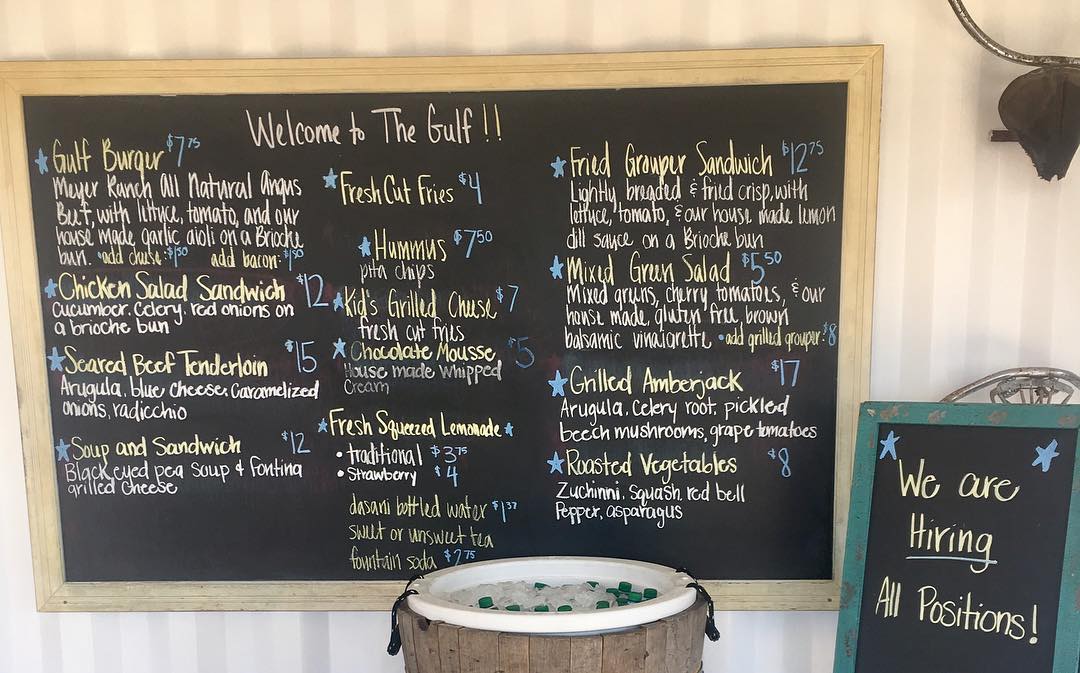 Welcome to The Gulf!!
Gulf Burger $7.75
Meyer Ranch All Natural Angus
Beef, with lettuce, tomato, and our
house made garlic aioli on a Brioche
bun. •add cheese: $1.50 add bacon: $1.50
Chicken Salad Sandwich $12
Cucumber, Celery, red onions on
a brioche bun
Seared Beef Tenderloin $15
Arugula, blue cheese, Caramelized
onions, radicchio
Soup and Sandwich $12
Black eyed pea Soup & fontina
grilled cheese
Fresh Cut Fries $4
Hummus $7.50
pita chips
Kid's Grilled Cheese $7
fresh cut fries
Chocolate Mousse $5
House made Whipped
Cream
Fresh Squeezed Lemonade
• traditional $3.75
• Strawberry $4
dasani bottled water $1.37
sweet or unsweet tea
fountain soda $2.75
Fried Grouper Sandwich $12.75
Lightly breaded & fried crisp, with
lettuce, tomato, & our house made lemon
dill sauce on a Brioche bun
Mixed Green Salad $5.50
Mixed greens, cherry tomatoes, & our
house made, gluten free, brown
balsamic vinaigrette •add grilled grouper: $8
Grilled Amberjack $17
Arugula, Celery root, pickled
beech mushrooms, grape tomatoes
Roasted Vegetables $8
Zuchinni, Squash, red bell
Pepper, asparagus
We are
Hiring
All Positions!